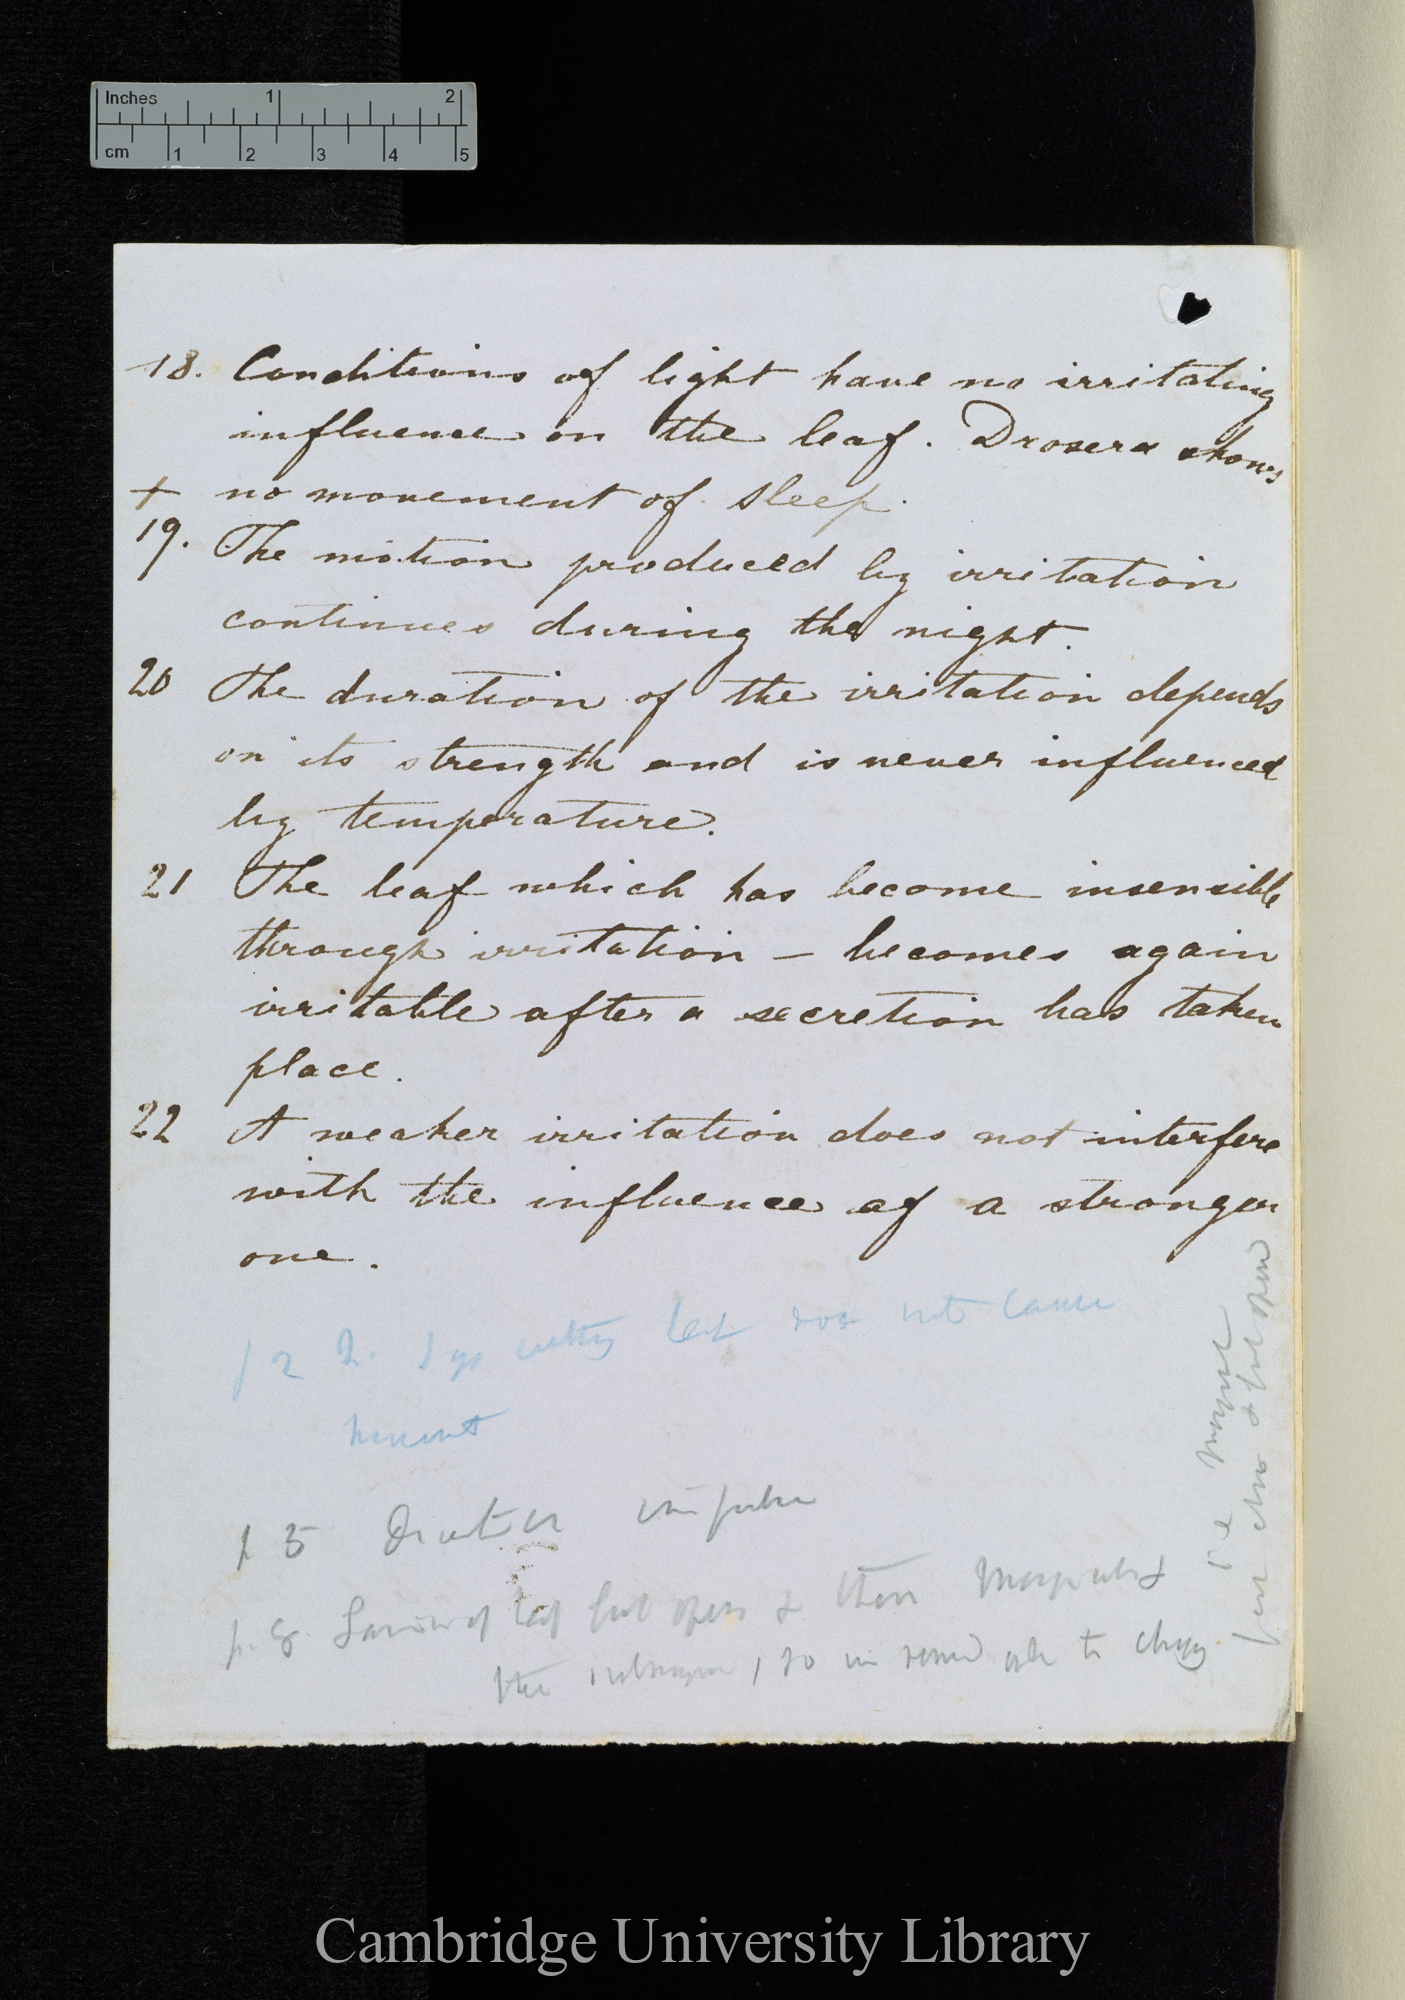 Inches 1 2
cm 1 2 3 4 5
18. Conditions of light have no irritating
influence on the leaf. Drosera shows
+ no movement of sleep.
19. The motion produced by irritation
continues during the night.
20 The duration of the irritation depends
on its strength and is never influenced
by temperature.
21 The leaf which has become insensible
through irritation – becomes again
irritable after a secretion has taken
place.
22 A weaker irritation does not interfere
with the influence of a stronger
one.
p 2 2. Says cutting leaf does not cause
movement
p 5 Direction
p. 8. leaf first open & then
the to
Cambridge University Library